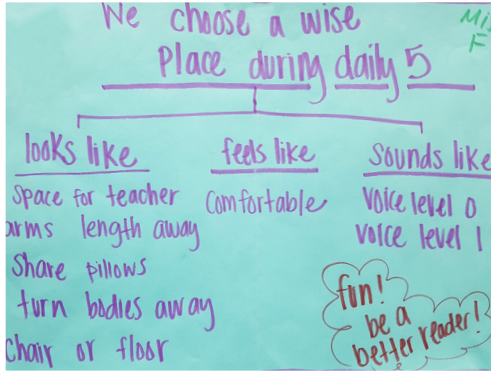 We choose a wise
Place during daily 5
looks like
space for teacher
arms length away
Share pillows
turn bodies away
chair or floor
feels like
Comfortable
Sounds like
Voice level 0
voice level 1
fun!
be a
better reader!